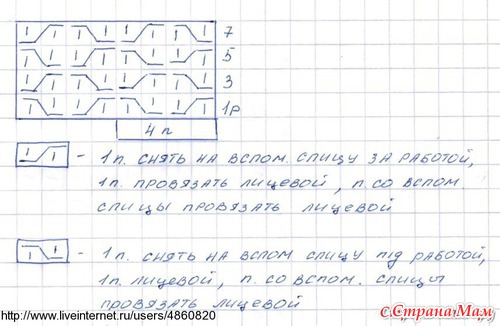 7
5
3
1р
4 п
- 1п. снять на вспом. спицу за работой,
1п. провязать лицевой, п. со вспом.
спицы провязать лицевой
- 1п. снять на вспом спицу під работой,
1п. лицевой, п. со вспом. спицы
провязать лицевой
http://www.liveinternet.ru/users/4860820
с.Страна Мам.ru